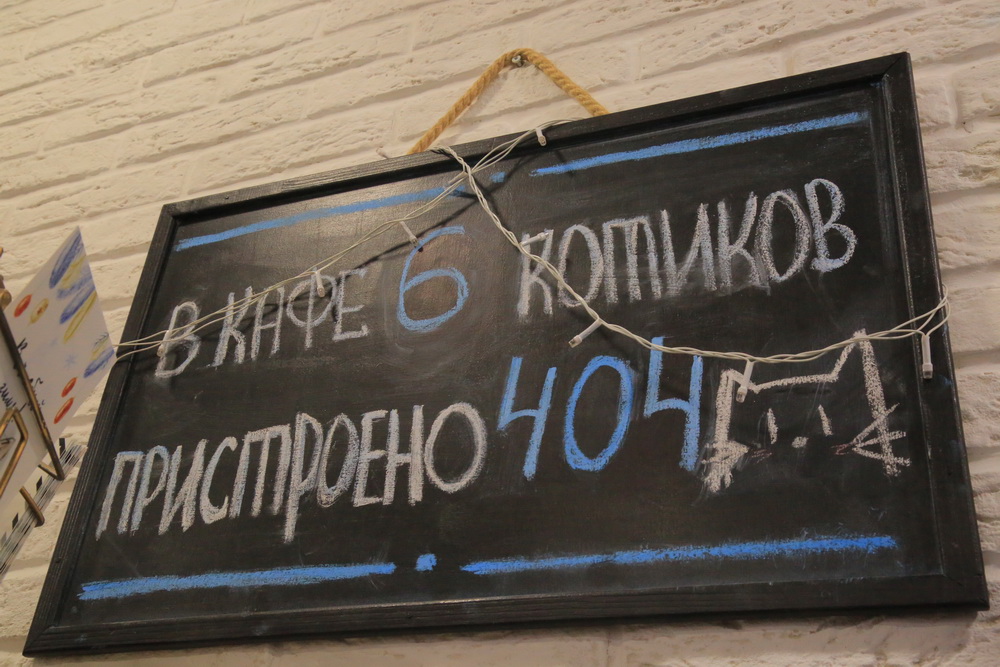 В КАФЕ 6 КОТИКОВ
ПРИСТРОЕНО 404